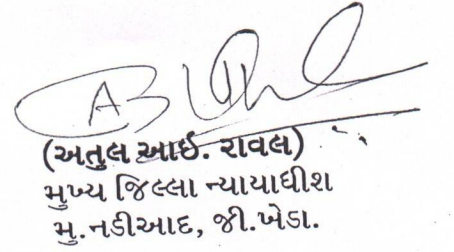 (અતુલ આઈ. રાવલ)
મુખ્ય જિલ્લા ન્યાયાધીશ
મુ.નડીઆદ, જી.ખેડા.